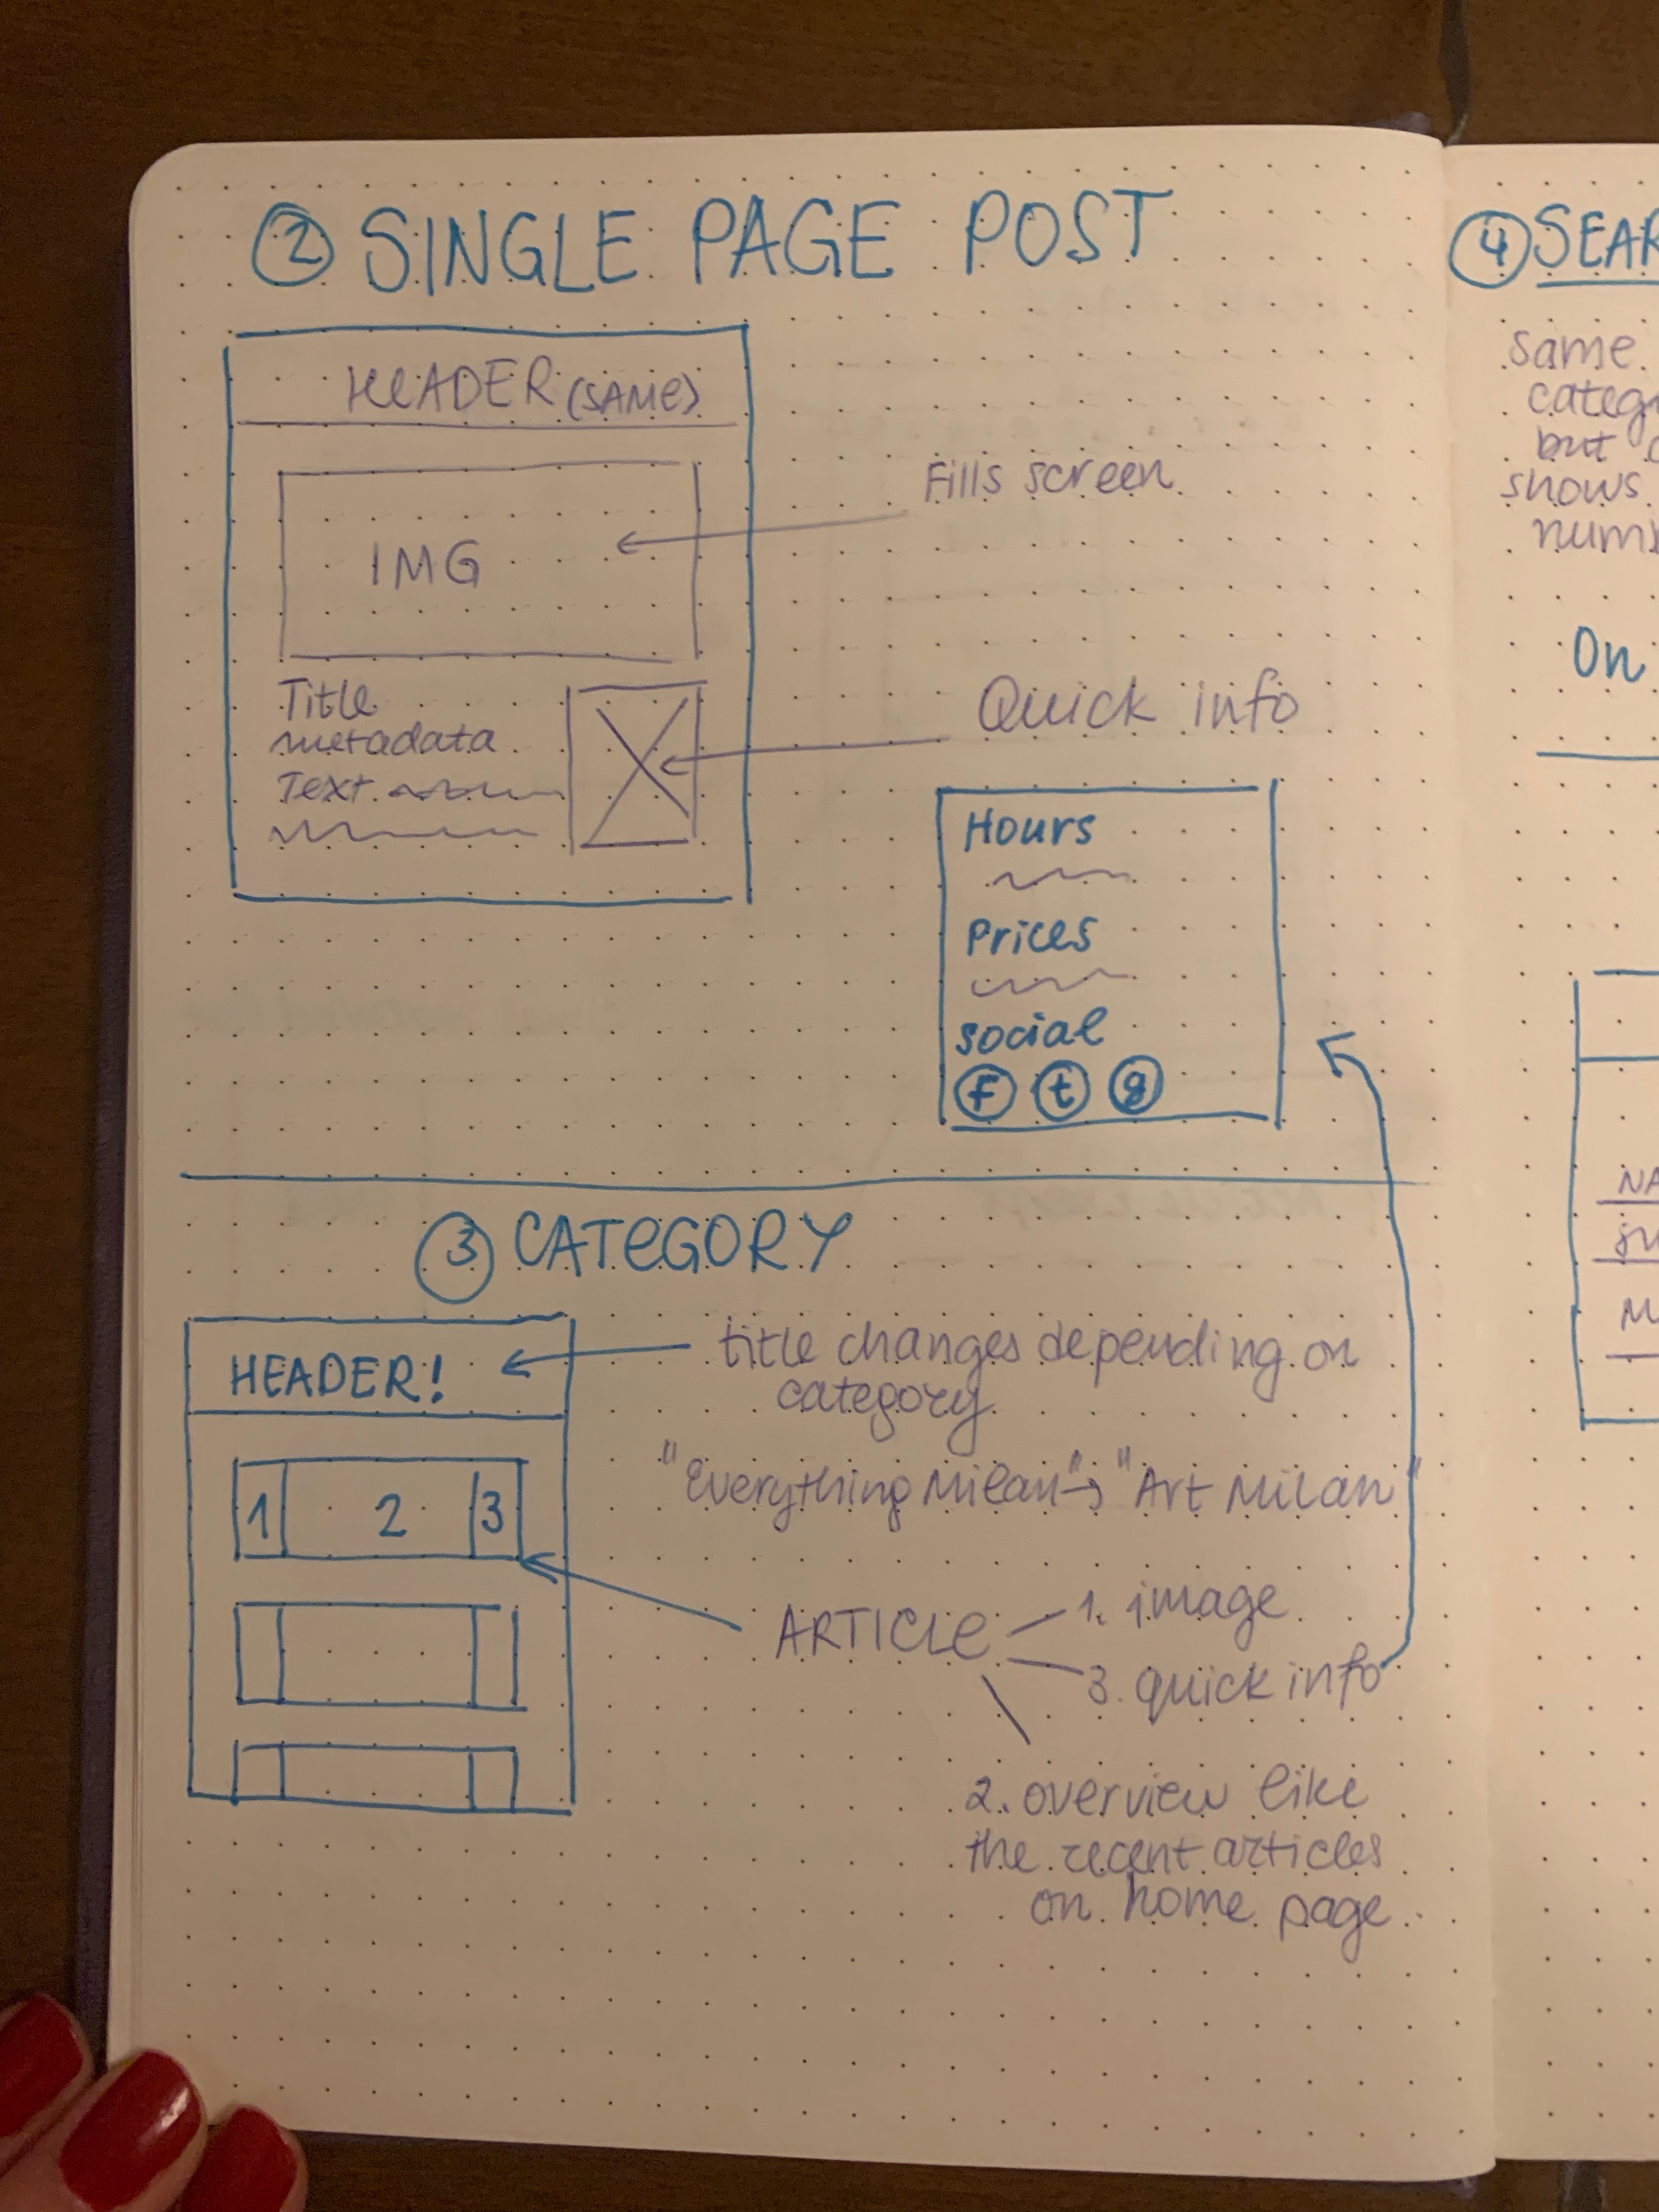 ② SINGLE PAGE POST
HEADER (SAME)
IMG
Fills screen
Title
metadata
Text
Quick info
Hours
Prices
social
f t g
③ CATEGORY
HEADER!
title changes depending on
category
"Everything Milan" → "Art Milan"
1 2 3
ARTICLE
1. image
3. quick info
2. overview like
the recent articles
on home page
④ SEAR
Same
categ
but
shows
num
On
NA
M